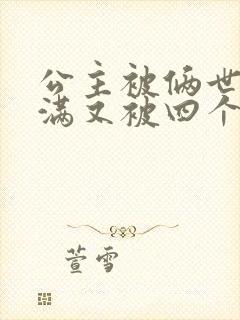 公主被俩世
满又被四个
萱雪